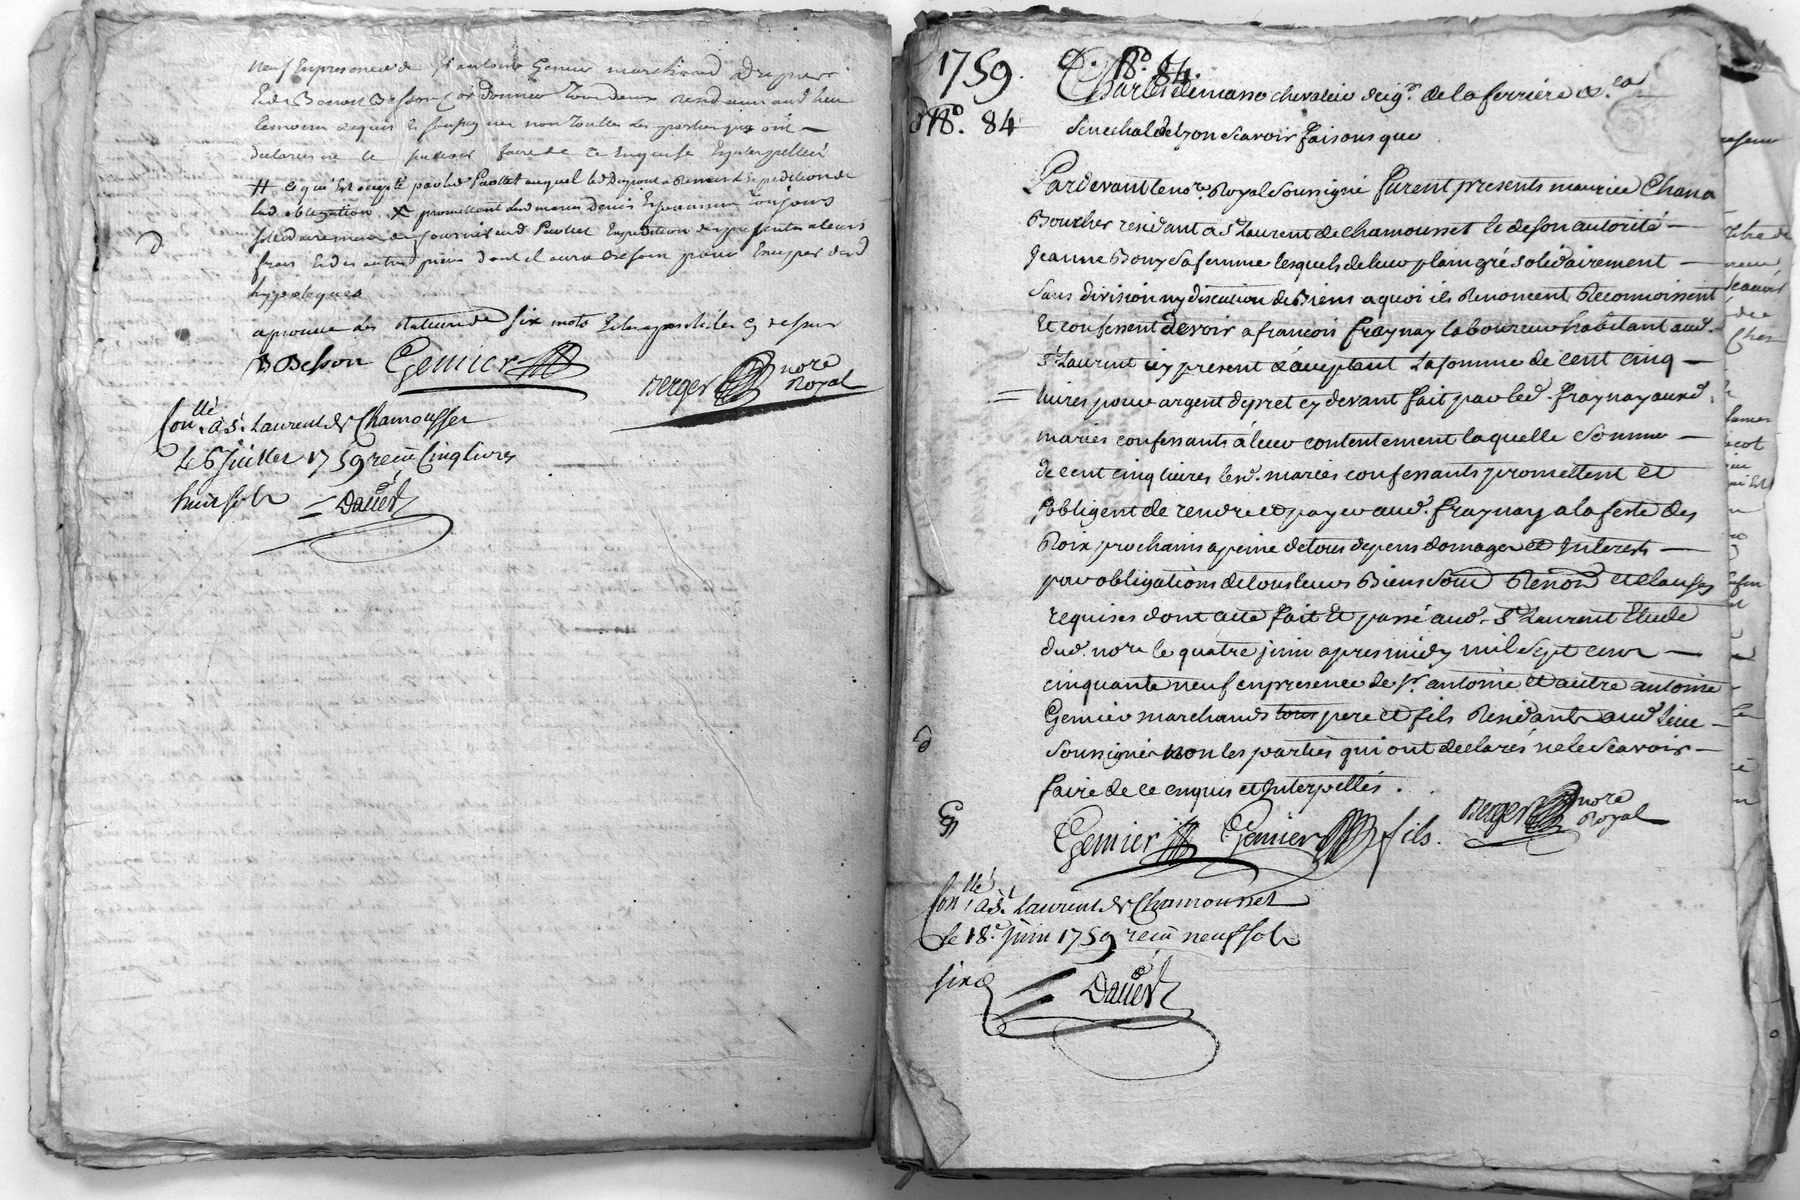 neuf en presence de Sr antoine Genier marchand Drapier
lesmoins requis et soussignés non touttes les parties qui ont
declarées ne le scavoir faire de ce Enquise Et Interpellées
# ce qui Est accepté par led Paollet auquel led Dupont a Remis L'Expedition de
lad. obligation, X promettant lesd maries Denis Et toujours
solidairement de fournir aud Expedition des presentes a leurs
frais Et des autres pieces dont il aura Besoin pour Exciper desd
hypoteques
aprouvé des Ratures de six mots Et les apostilles cy dessus
B Besson Genier Berger nore Royal
Conllé à St. Laurent de Chamousset
le 6 Juillet 1759 reçu Cinq livres
huit sols Dauet
1759. C. No. 84.
Charles demasso chevalier seigr. de la ferriere &.ca
No. 84
Senechal de Lyon scavoir faisons que
Pardevant le nore. Royal Soussigné furent presents maurice Chana
Boucher residant a St Laurent de chamousset et de son autorité
Jeanne Bony sa femme lesquels de leur plain gré solidairement
Sans division ny discution de Biens a quoi ils Renoncent, Reconnoissent
Et confessent devoir a françois fraynay laboureur habitant aud.
St Laurent icy present & acceptant La somme de cent cinq
livres pour argent de pret cy devant fait par led. fraynay auxd.
mariés confessants à leur contentement laquelle somme
de cent cinq livres lesd. mariés confessants promettent et
s'obligent de rendre et payer aud. fraynay a la feste des
Roix prochains a peine de tous depens domages et Interests
par obligations de tous leurs Biens Soum Renon et clauses
requises dont acte fait Et passé aud. St Laurent Etude
dud. nore le quatre juin apres midy mil sept cent
cinquante neuf en presence de Sr. antoine et autre antoine
Genier marchands tous pere et fils Residants aud Lieu
Soussignés non les parties qui ont declarés ne le scavoir
faire de ce enquis et Interpellés.
Genier Genier fils. Berger nore Royal
Conllé à St. Laurent de Chamousset
le 18e. Juin 1759 reçu neuf sols
six d Dauet